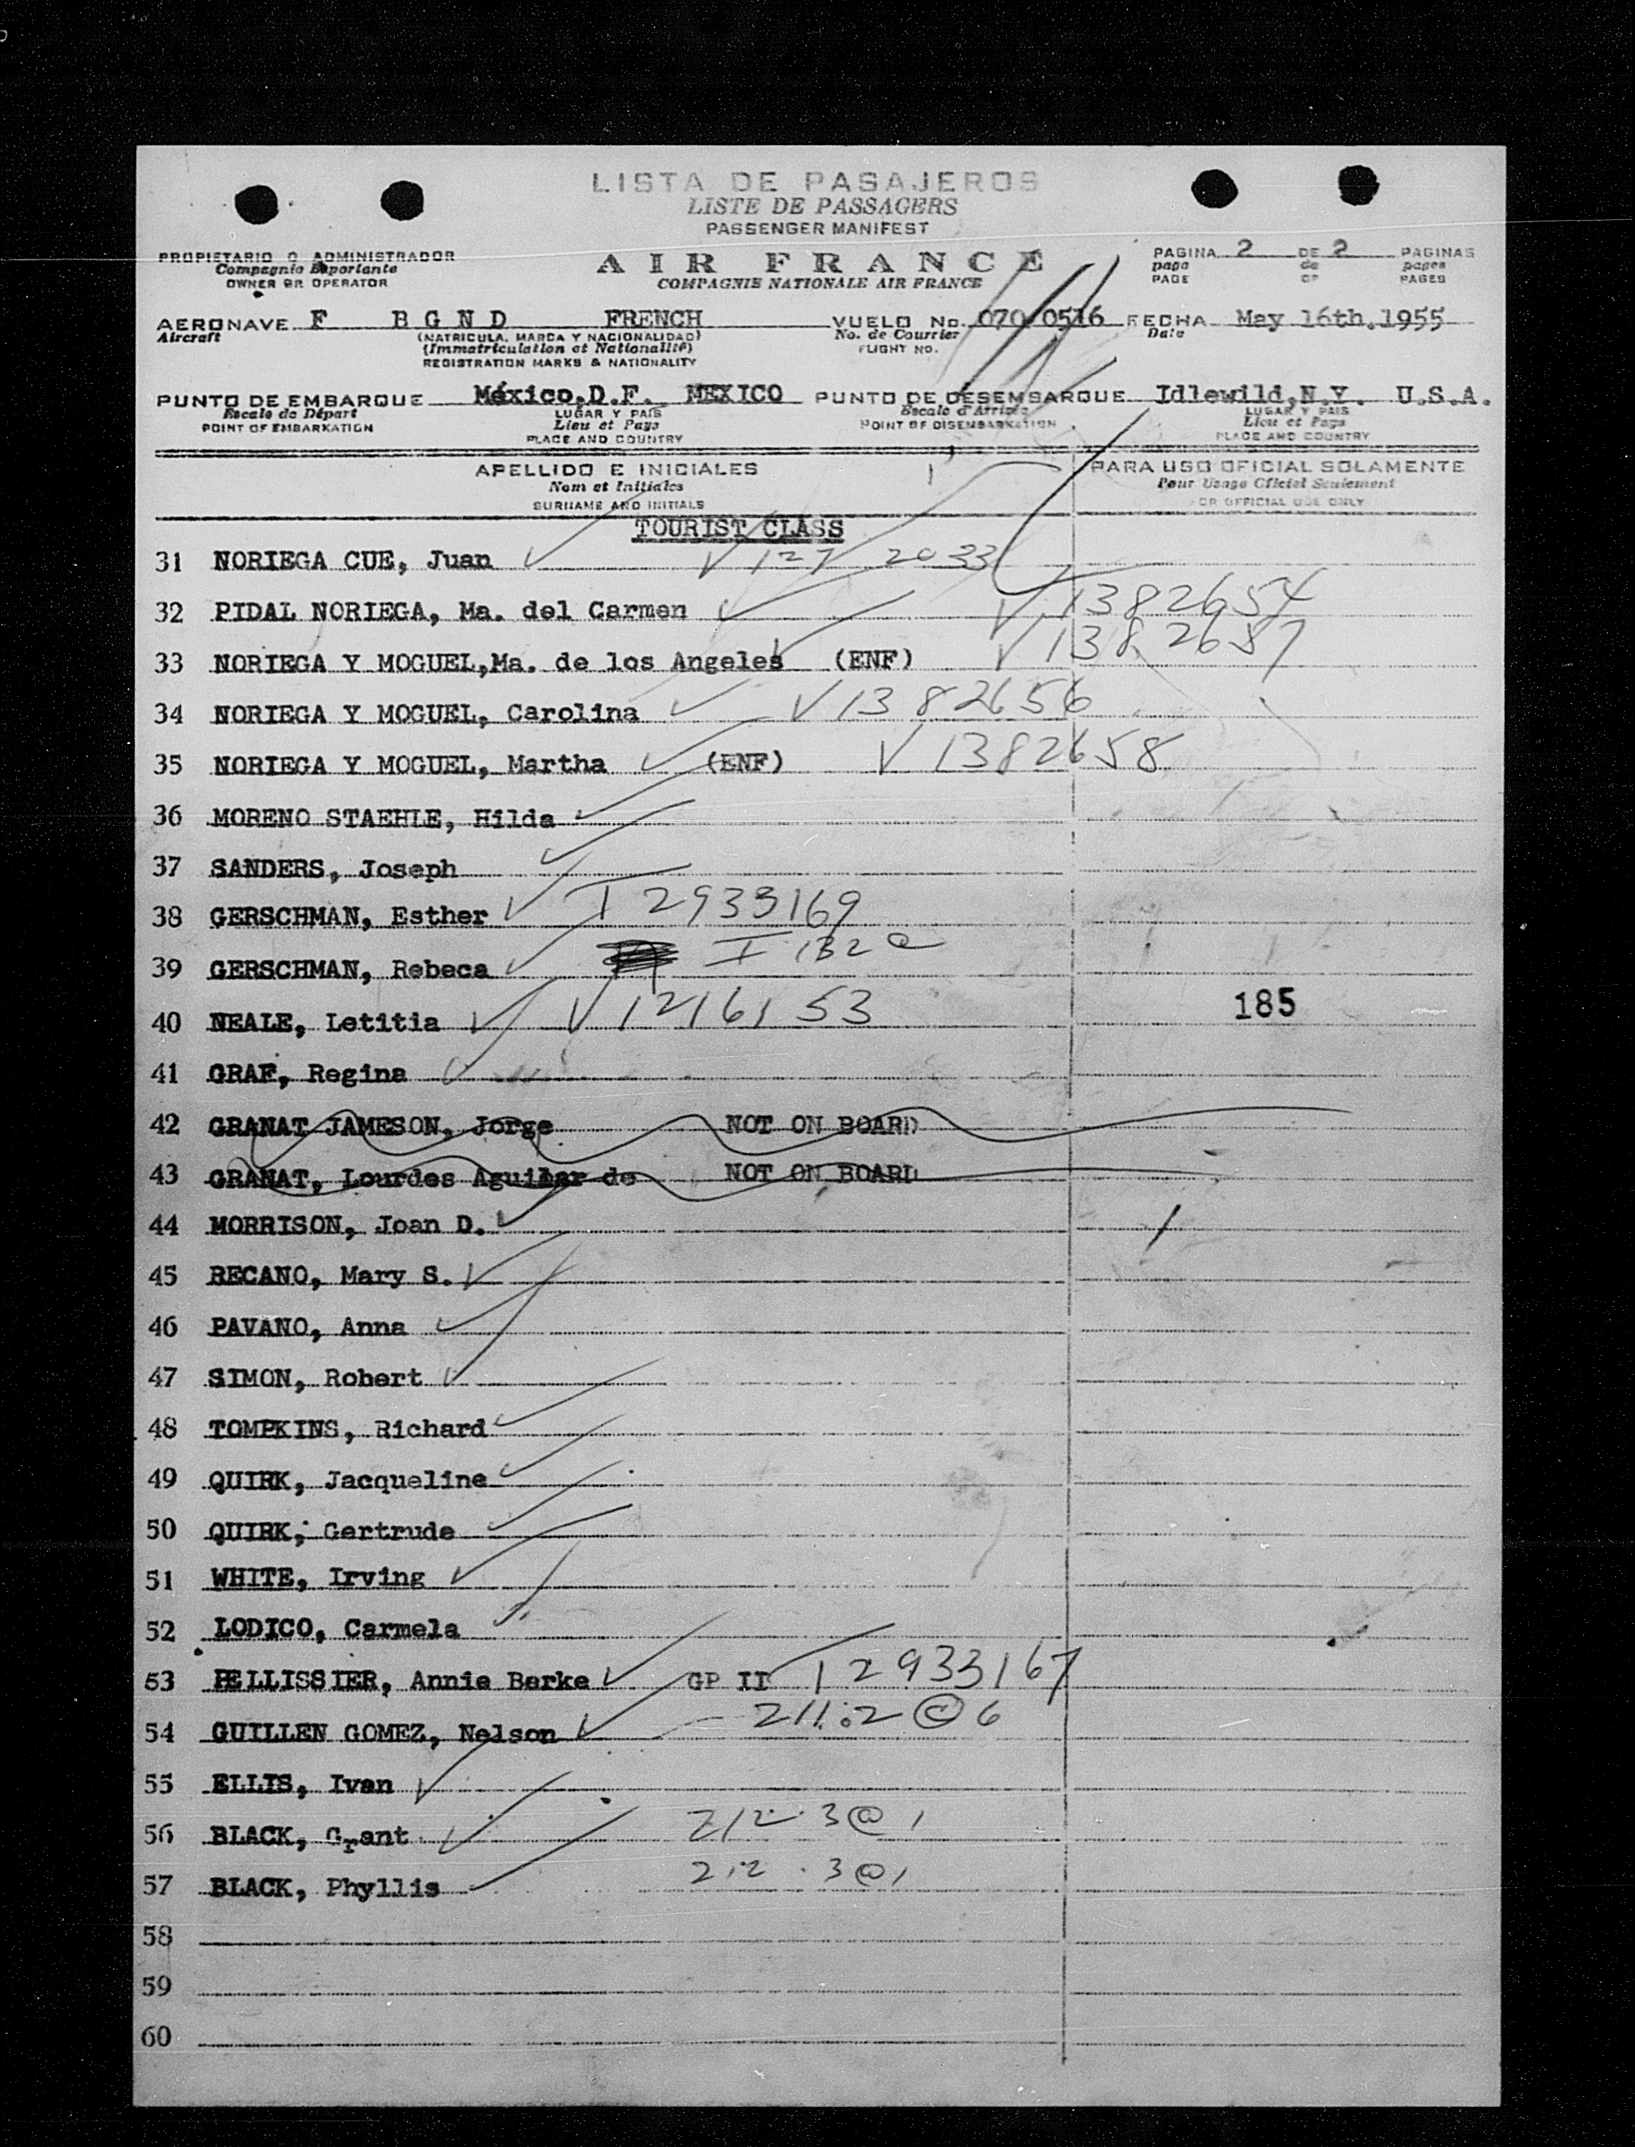 LISTA DE PASAJEROS
LISTE DE PASSAGERS
PASSENGER MANIFEST
PROPIETARIO O ADMINISTRADOR
Compagnie Exportante
OWNER OR OPERATOR
AIR FRANCE
COMPAGNIE NATIONALE AIR FRANCE
PAGINA 2 DE 2 PAGINAS
page de pages
PAGE OF PAGES
AERONAVE F BGND FRENCH VUELO No. 070/0516 FECHA May 16th.1955
Aircraft (MATRICULA, MARCA Y NACIONALIDAD) No. de Courrier Date
(Immatriculation et Nationalité) FLIGHT NO.
REGISTRATION MARKS & NATIONALITY
PUNTO DE EMBARQUE México,D.F. MEXICO PUNTO DE DESEMBARQUE Idlewild,N.Y. U.S.A.
Escale de Départ LUGAR Y PAIS Escale d'Arrivée LUGAR Y PAIS
POINT OF EMBARKATION Lieu et Pays POINT OF DISEMBARKATION Lieu et Pays
PLACE AND COUNTRY PLACE AND COUNTRY
APELLIDO E INICIALES PARA USO OFICIAL SOLAMENTE
Nom et Initiales Pour Usage Officiel Seulement
SURNAME AND INITIALS FOR OFFICIAL USE ONLY
TOURIST CLASS
31 NORIEGA CUE, Juan V 127 2033
32 PIDAL NORIEGA, Ma. del Carmen V 1382654
33 NORIEGA Y MOGUEL,Ma. de los Angeles (ENF) V 1382657
34 NORIEGA Y MOGUEL, Carolina V 1382656
35 NORIEGA Y MOGUEL, Martha (ENF) V 1382658
36 MORENO STAEHLE, Hilda
37 SANDERS, Joseph
38 GERSCHMAN, Esther T 2933169
39 GERSCHMAN, Rebeca I 132
40 NEALE, Letitia V 1216153 185
41 GRAF, Regina
42 GRANAT JAMESON, Jorge NOT ON BOARD
43 GRANAT, Lourdes Aguilar de NOT ON BOARD
44 MORRISON, Joan D.
45 RECANO, Mary S.
46 PAVANO, Anna
47 SIMON, Robert
48 TOMPKINS, Richard
49 QUIRK, Jacqueline
50 QUIRK, Gertrude
51 WHITE, Irving
52 LODICO, Carmela
53 PELLISSIER, Annie Berke GP II T 2933167
54 GUILLEN GOMEZ, Nelson 211.2 @ 6
55 ELLIS, Ivan
56 BLACK, Grant 212.3@1
57 BLACK, Phyllis 212.3@1
58
59
60